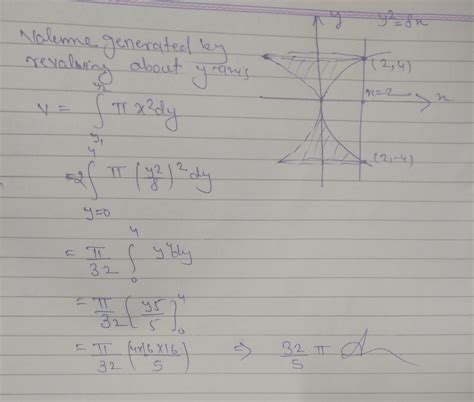 Volume generated by
revolving about y-axis
V = ∫_{y₁}^{y₂} π x² dy
= 2 ∫_{y=0}^{4} π (y²/8)² dy
= π/32 ∫_0^4 y⁴ dy
= π/32 [y5/5]_0^4
= π/32 (4×16×16/5) ⇒ 32/5 π
y
y² = 8x
(2,4)
x=2
x
(2,-4)